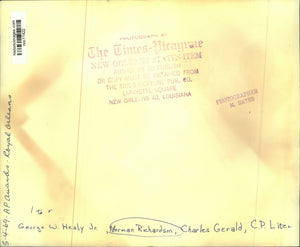 PHOTOGRAPH BY
The Times-Picayune
NEW ORLEANS STATES-ITEM
AUTHORITY TO PUBLISH
OR COPY MUST BE OBTAINED FROM
THE TIMES-PICAYUNE PUB. CO.
LAFAYETTE SQUARE
NEW ORLEANS 40, LOUISIANA
PHOTOGRAPHER
H. BAYES
5-4-69 AP Awards - Royal Orleans
l to r
George W. Healy Jr. Norman Richardson, Charles Gerald, C.P. Liter